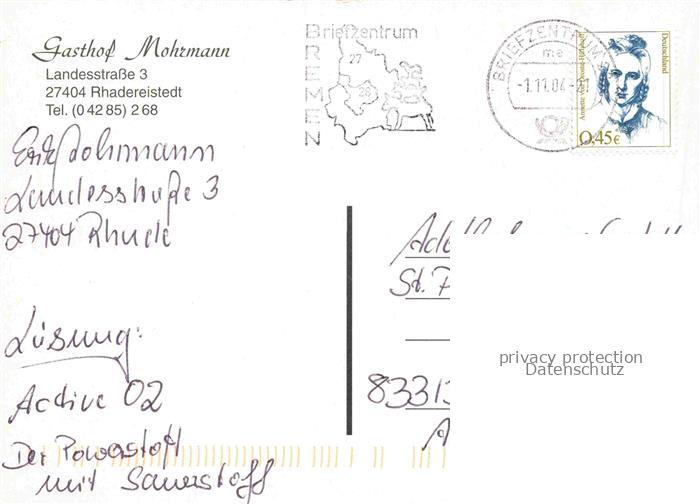 Gasthof Mohrmann
Landesstraße 3
27404 Rhadereistedt
Tel. (0 42 85) 2 68
BREMEN
Briefzentrum
27
28
BRIEFZENTRUM
me
-1.11.04-21
Deutschland
Annette von Droste-Hülshoff
0,45€
Mohrmann
Landesstraße 3
27404 Rhade
Lösung:
Active O2
Der Powerstoff
mit Sauerstoff
Ade
St. P
8331
A
privacy protection
Datenschutz